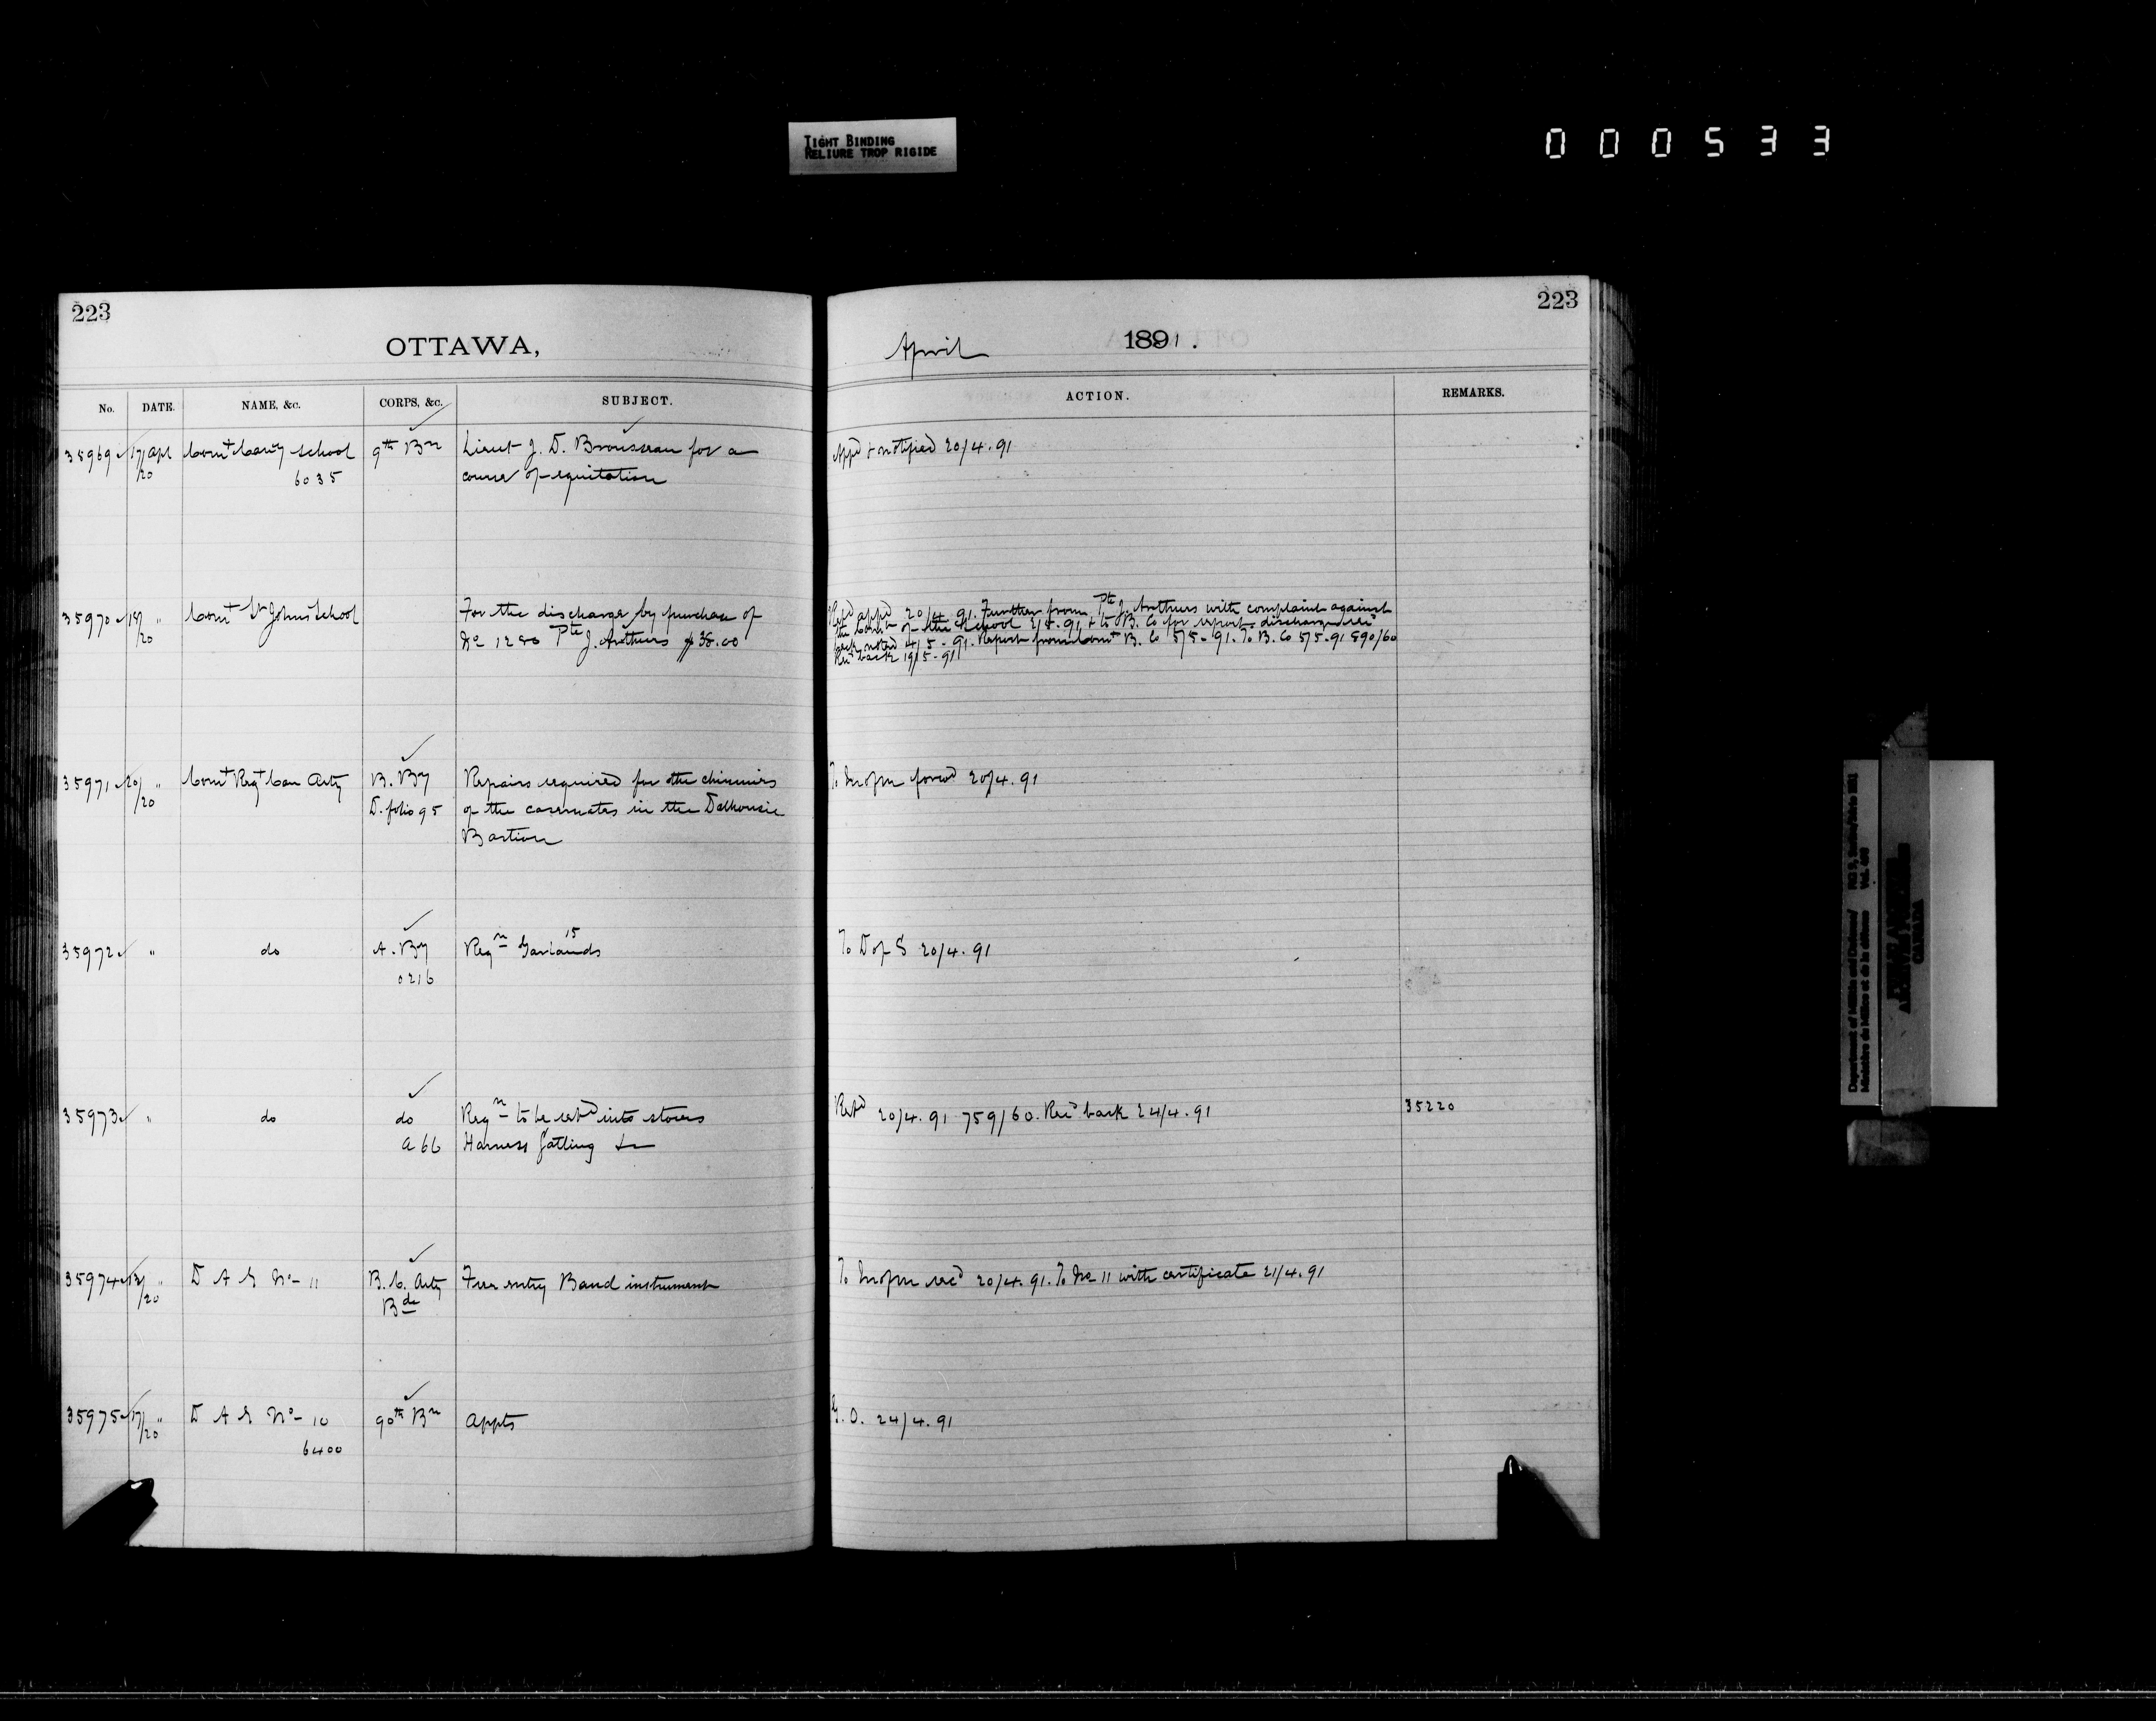 TIGHT BINDING
RELIURE TROP RIGIDE
000533
223
223
OTTAWA,
April 1891.
No. DATE. NAME, &c. CORPS, &c. SUBJECT. ACTION. REMARKS.
35969 17/20 Apl Comt Cavy School 9th Bn Lieut J. D. Brousseau for a Appd & notified 20/4.91
6035 course of equitation
35970 18/20 " Comt St Johns School For the discharge by purchase of Retd appd 20/4.91. Further from Pte J. Arthurs with complaint against
No 1280 Pte J. Arthurs $38.00 the Comt of the School 2/5.91 & to B. Co for report discharge recd
back noted 4/5-91. Report from Comt B. Co 5/5-91. To B. Co 5/5-91 890/60
Recd back 19/5-91
35971 20/20 " Comt Regt Can Arty B. By Repairs required for the chimnies To M of M forwd 20/4.91
D. folio 95 of the casemates in the Dalhousie
Bastion
35972 " do A. By Reqn Garlands 15 To D of S 20/4.91
0216
35973 " do do Reqn to be retd into stores Retd 20/4.91 759/60. Recd back 24/4.91 35220
a 66 Harness Gatling &c
35974 13/20 " D A G No 11 B. C. Arty Free entry Band instruments To M of M recd 20/4.91. To No 11 with certificate 21/4.91
Bde
35975 17/20 " D A G No 10 90th Bn Appts G. O. 24/4.91
6400
Department of Militia and Defence/
Ministère de Milice et de la défense